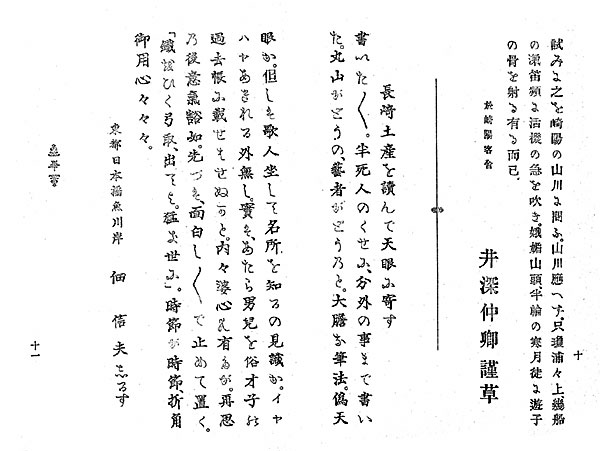 試みよ之を崎陽の山川よ問ふ。山川應へず只瓊浦々上、幾船
の漁笛頻よ活機の急を吹き。娥嵋山頭、半輪の寒月徒よ遊子
の骨を射る有る而已。
於崎陽客舍
井深仲卿謹草
十
長崎土産を讀んで天眼ふ寄す
書いた〱。半死人のくせふ、分外の事まで書い
た。丸山がどうの、藝者がどう乃と。大膽な筆法。偽天
眼か。但しも歌人坐して名所を知るの見識か。イヤ
ハヤあきれる外無し。實も、あたら男兒を俗才子の
過去帳ふ載せもせぬかと。内々婆心も有るが。再思
乃後意氣豁如。先づも、面白し〱で止めて置く。
「蛾はひく弓取、出ても。猛き世ふ」。時節が時節、折角
御用心々々々。
東都日本橋魚川岸
佃 信夫しるす
十一